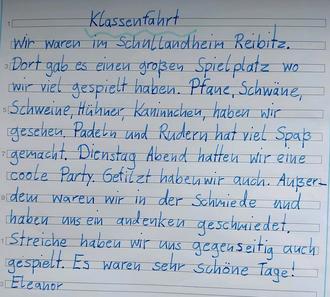 Klassenfahrt
Wir waren im Schullandheim Reibitz.
Dort gab es einen großen Spielplatz wo
wir viel gespielt haben. Pfaue, Schwäne,
Schweine, Hühner, Kaninchen, haben wir
gesehen. Padeln und Rudern hat viel Spaß
gemacht. Dienstag Abend hatten wir eine
coole Party. Gefilzt haben wir auch. Außer-
dem waren wir in der Schmiede und
haben uns ein andenken geschmiedet.
Streiche haben wir uns gegenseitig auch
gespielt. Es waren sehr Schöne Tage!
Eleanor